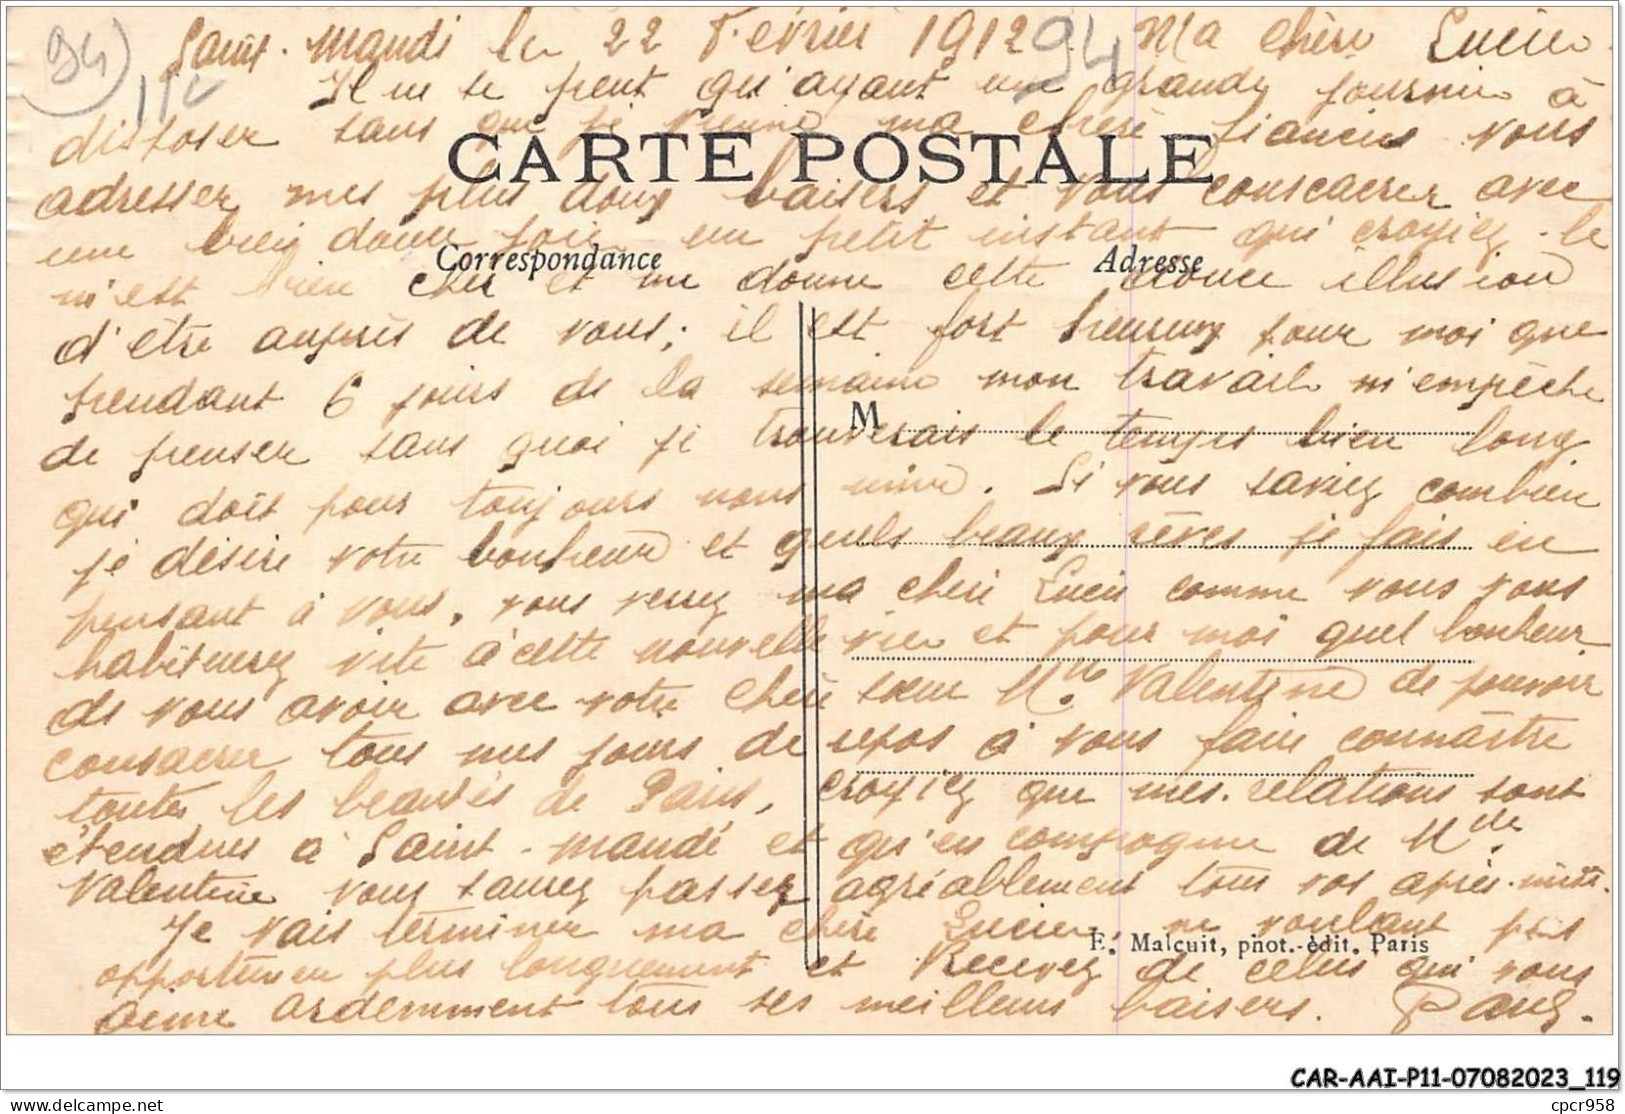 94)
Saint-Mandé le 22 Février 1912 94 Ma chère Lucie
Il ne se peut qu'ayant une grande journée à
disposer sans que je vienne ma chère fiancée vous
CARTE POSTALE
adresser mes plus doux baisers et vous consacrer avec
une bien douce joie un petit instant qui croyiez-le
Correspondance Adresse
m'est bien cher et me donne cette douce illusion
d'être auprès de vous; il est fort heureux pour moi que
pendant 6 jours de la semaine mon travail m'empêche
M
de penser sans quoi je trouverais le temps bien long
qui doit pour toujours nous unir. Si vous saviez combien
je désire votre bonheur et quels beaux rêves je fais en
pensant à vous, vous verrez ma chère Lucie comme vous vous
habituerez vite à cette nouvelle vie et pour moi quel bonheur
de vous avoir avec votre chère sœur Mlle Valentine de pouvoir
consacrer tous mes jours de repos à vous faire connaître
toutes les beautés de Paris, croyiez que mes relations sont
étendues à Saint-Mandé et qu'en compagnie de Mlle
Valentine vous saurez passer agréablement tous vos après-midi.
Je vais terminer ma chère Lucie, ne voulant pas
E. Malcuit, phot.-édit. Paris
plus longuement et Recevez de celui qui vous
aime ardemment tous ses meilleurs baisers. Paul.
CAR-AAI-P11-07082023_119
delcampe.net
cpcr958